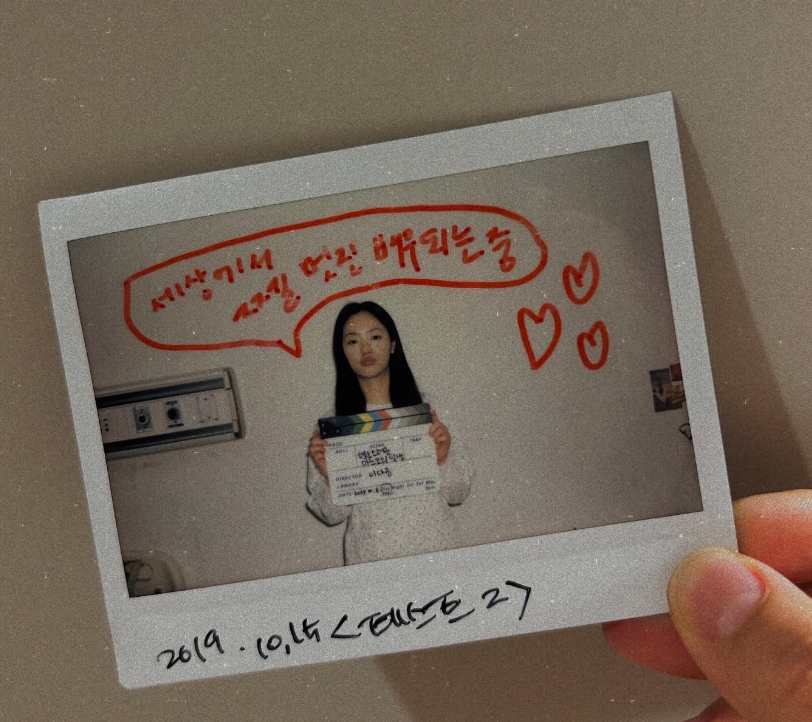 세상에서
제일 멋진 배우되는 중
ROLL SCENE TAKE
DIRECTOR 이다움
CAMERA
DATE
2019. 10, 15 <테스트 2>